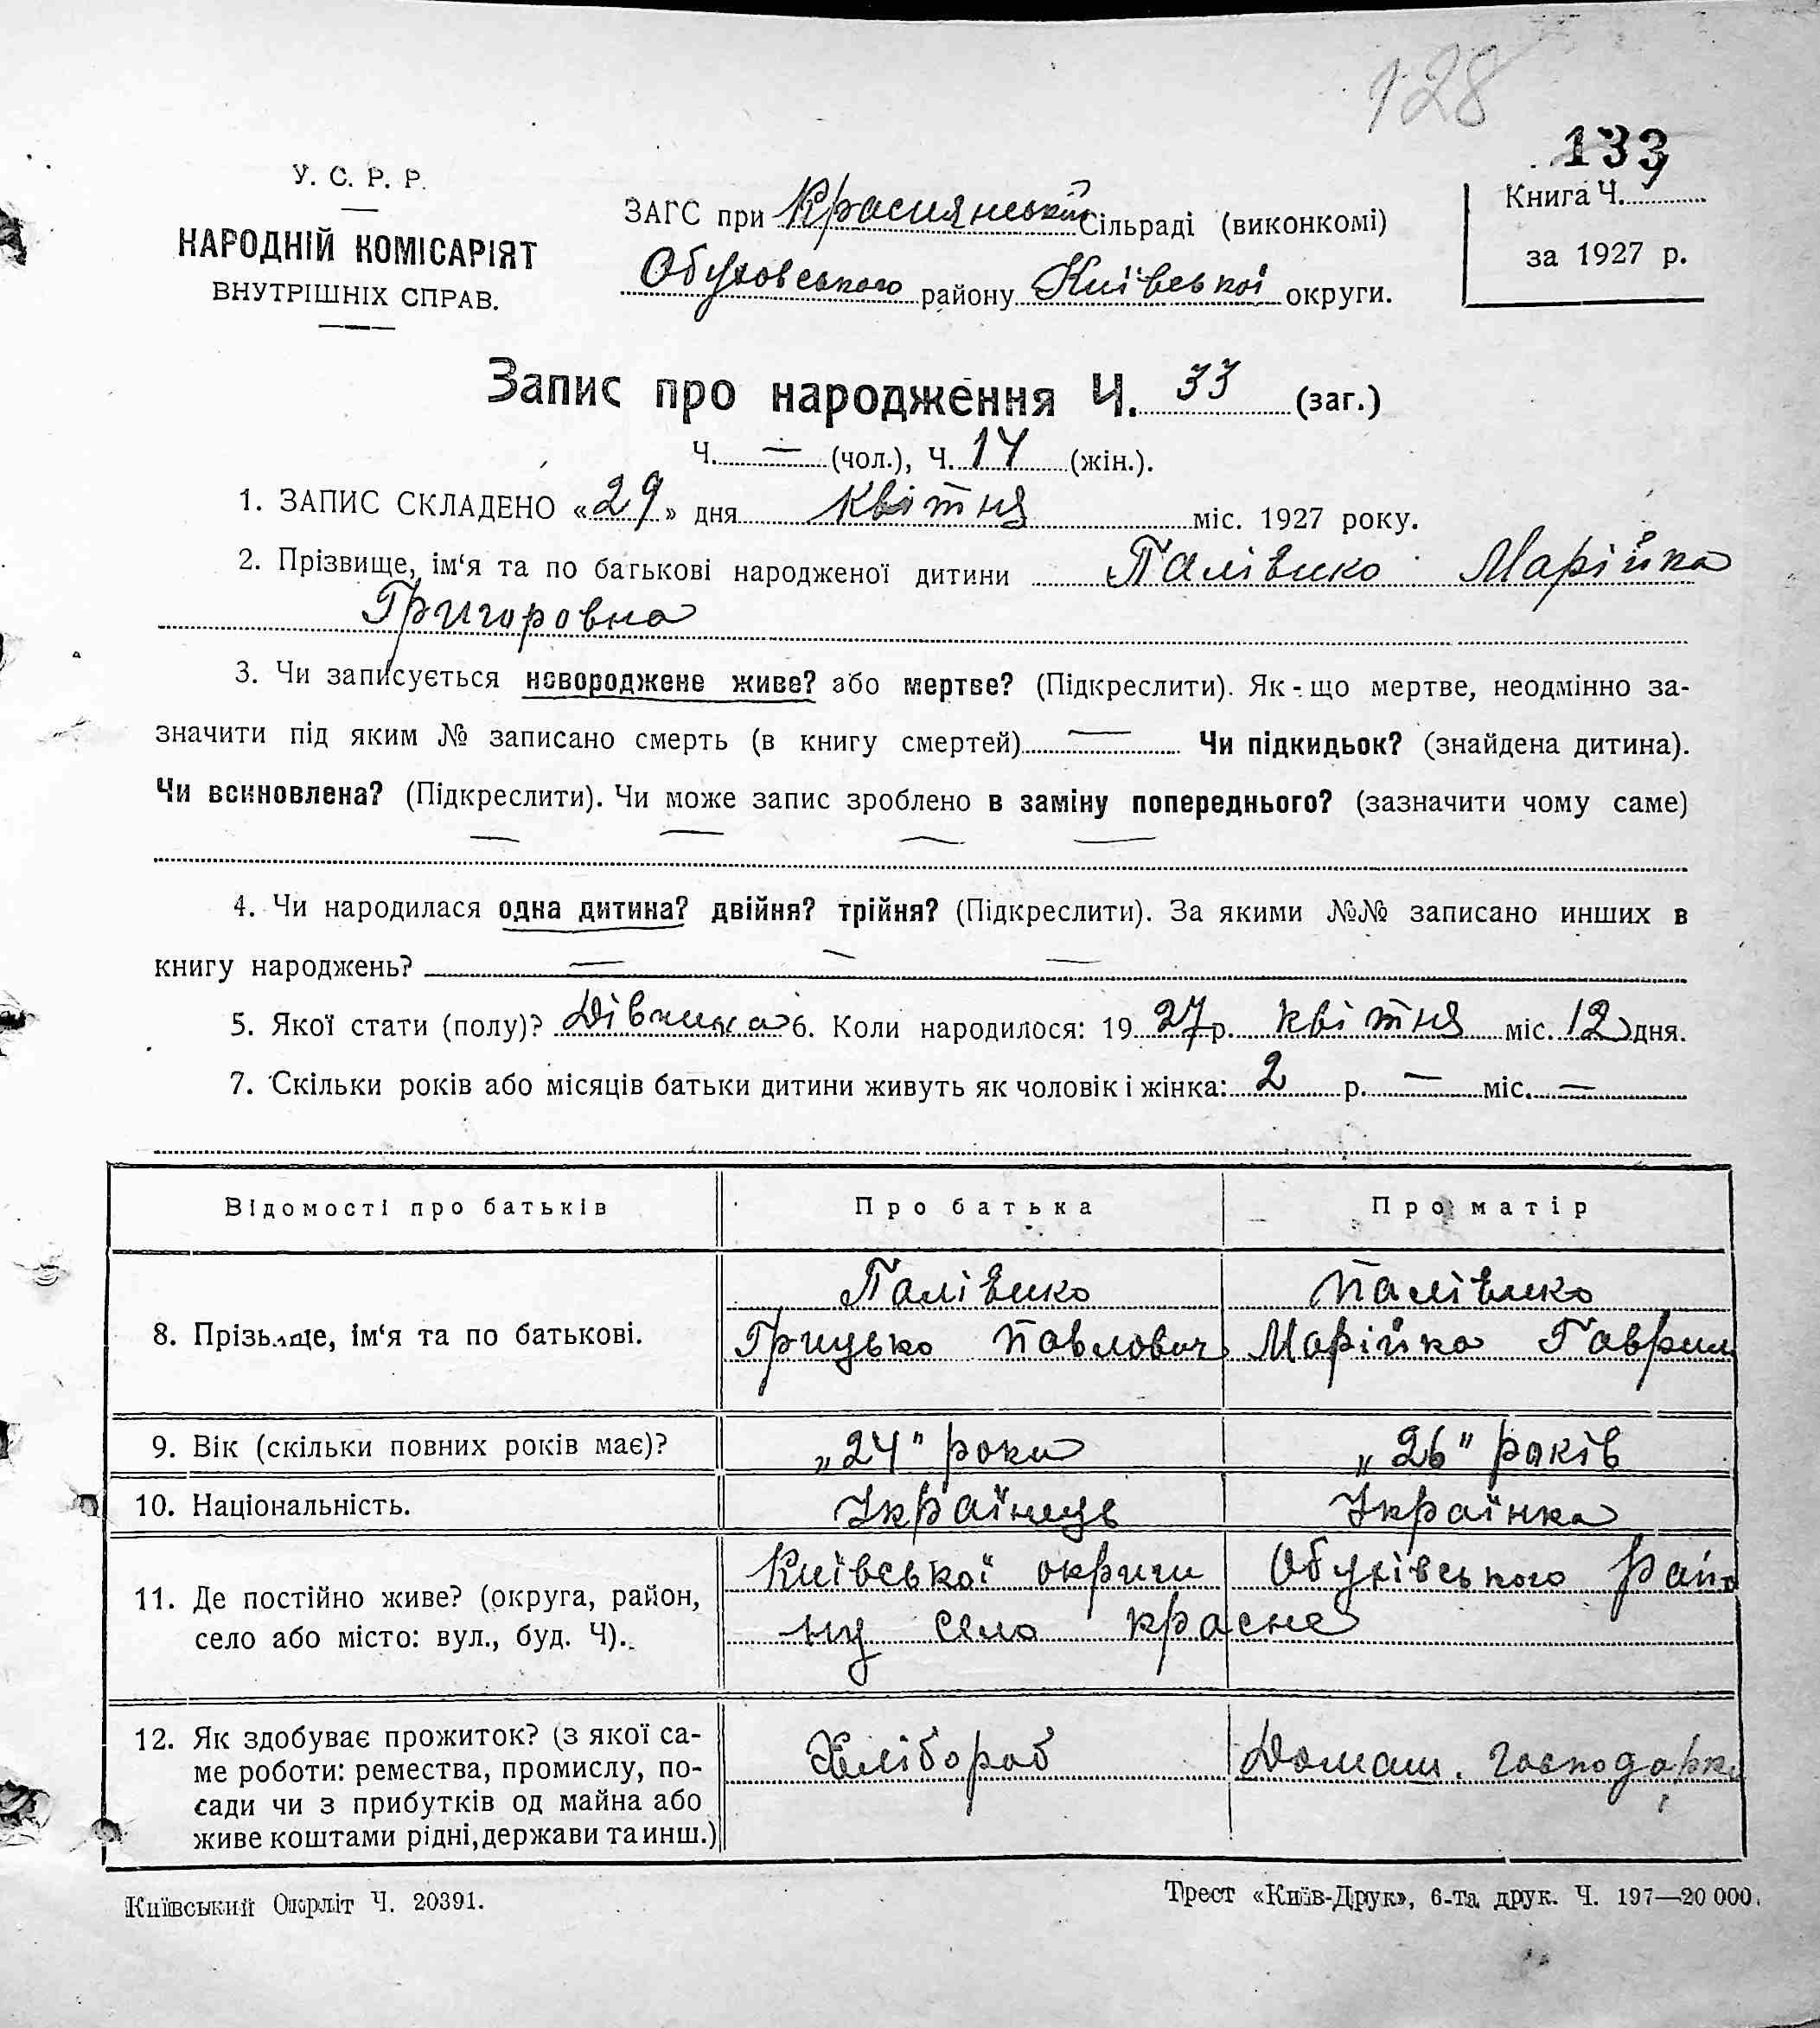 128
133
У. С. Р. Р.
НАРОДНІЙ КОМІСАРІЯТ
ВНУТРІШНІХ СПРАВ.
ЗАГС при Краснянській Сільраді (виконкомі)
Обуховського району Київської округи.
Книга Ч.
за 1927 р.
Запис про народження Ч. 33 (заг.)
Ч. — (чол.), Ч. 14 (жін.).
1. ЗАПИС СКЛАДЕНО «29» дня квітня міс. 1927 року.
2. Прізвище, ім‘я та по батькові народженої дитини Палівико Марійка
Григоровна
3. Чи записується новороджене живе? або мертве? (Підкреслити). Як-що мертве, неодмінно за-
значити під яким № записано смерть (в книгу смертей) — Чи підкидьок? (знайдена дитина).
Чи всиновлена? (Підкреслити). Чи може запис зроблено в заміну попереднього? (зазначити чому саме)
— — — —
4. Чи народилася одна дитина? двійня? трійня? (Підкреслити). За якими №№ записано инших в
книгу народжень? — — —
5. Якої стати (полу)? Дівчина 6. Коли народилося: 19 27 р. квітня міс. 12 дня.
7. Скільки років або місяців батьки дитини живуть як чоловік і жінка: 2 р. — міс. —
Відомості про батьків Про батька Про матір
8. Прізвище, ім‘я та по батькові.
Палівико Палівико
Грицько Павлович Марійка Гаврил
9. Вік (скільки повних років має)? „24" роки „26" років
10. Національність. Українець Українка
11. Де постійно живе? (округа, район,
село або місто: вул., буд. Ч).
Київської окриги Обухівського райо
ну село красне
12. Як здобуває прожиток? (з якої са-
ме роботи: ремества, промислу, по-
сади чи з прибутків од майна або
живе коштами рідні, держави та инш.)
Хлібороб Домаш. господарка
Київський Окрліт Ч. 20391.
Трест «Київ-Друк», 6-та друк. Ч. 197—20 000.